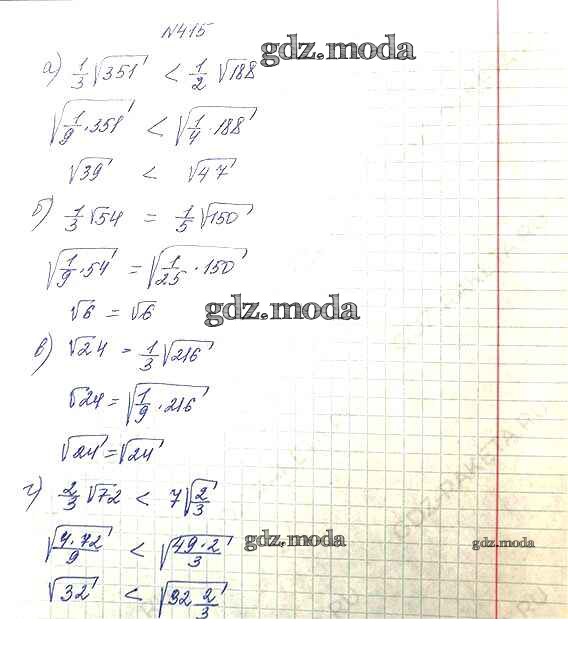 N415
gdz.moda
а) 1/3 √351 < 1/2 √188
√(1/9 · 351) < √(1/4 · 188)
√39 < √47
б) 1/3 √54 = 1/5 √150
√(1/9 · 54) = √(1/25 · 150)
√6 = √6
gdz.moda
в) √24 = 1/3 √216
√24 = √(1/9 · 216)
√24 = √24
г) 2/3 √72 < 7 √(2/3)
√(4·72/9) < √(49·2/3)
gdz.moda
gdz.moda
√32 < √(32 2/3)
GDZ-RAKETA.RU